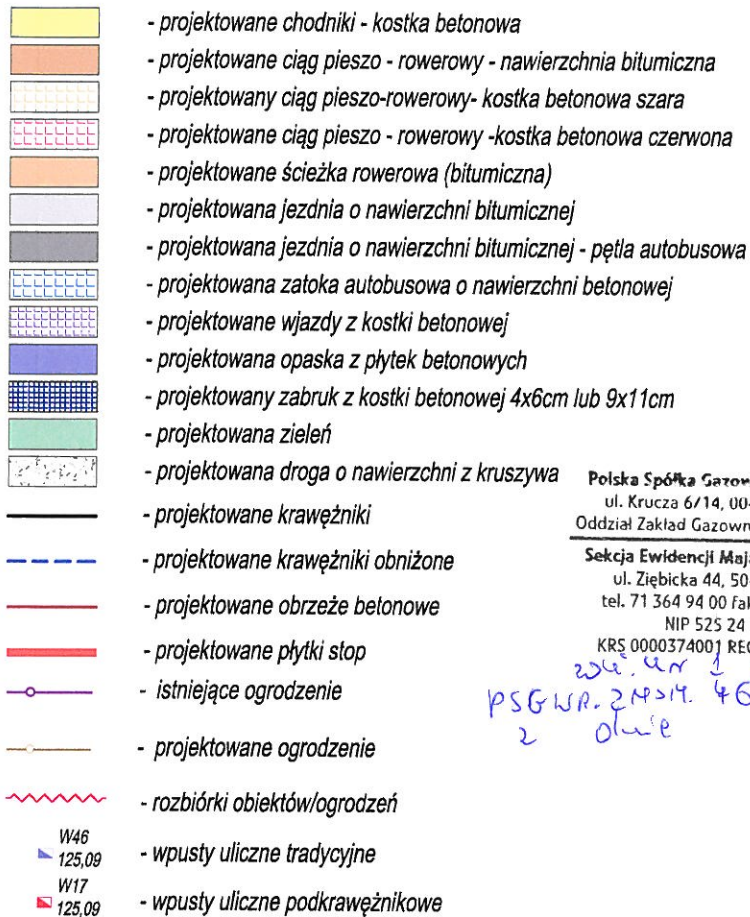 - projektowane chodniki - kostka betonowa
- projektowane ciąg pieszo - rowerowy - nawierzchnia bitumiczna
- projektowany ciąg pieszo-rowerowy- kostka betonowa szara
- projektowane ciąg pieszo - rowerowy -kostka betonowa czerwona
- projektowane ścieżka rowerowa (bitumiczna)
- projektowana jezdnia o nawierzchni bitumicznej
- projektowana jezdnia o nawierzchni bitumicznej - pętla autobusowa
- projektowana zatoka autobusowa o nawierzchni betonowej
- projektowane wjazdy z kostki betonowej
- projektowana opaska z płytek betonowych
- projektowany zabruk z kostki betonowej 4x6cm lub 9x11cm
- projektowana zieleń
- projektowana droga o nawierzchni z kruszywa
- projektowane krawężniki
- projektowane krawężniki obniżone
- projektowane obrzeże betonowe
- projektowane płytki stop
- istniejące ogrodzenie
- projektowane ogrodzenie
- rozbiórki obiektów/ogrodzeń
W46
125,09 - wpusty uliczne tradycyjne
W17
125,09 - wpusty uliczne podkrawężnikowe
Polska Spółka Gazow
ul. Krucza 6/14, 00-
Oddział Zakład Gazown
Sekcja Ewidencji Maj
ul. Ziębicka 44, 50-
tel. 71 364 94 00 fak
NIP 525 24
KRS 0000374001 REG